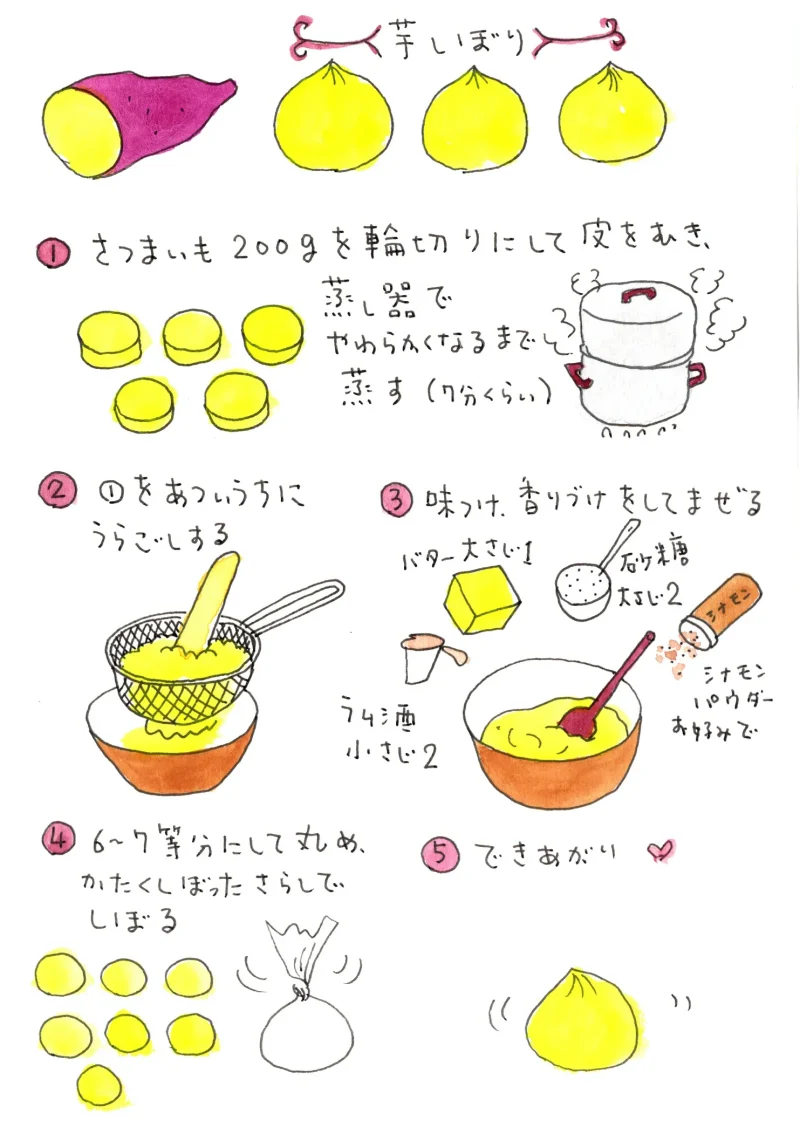 芋しぼり
① さつまいも 200gを輪切りにして皮をむき、
蒸し器で
やわらかくなるまで
蒸す(7分くらい)
② ①をあついうちに
うらごしする
③ 味つけ、香りづけをしてまぜる
バター大さじ1
砂糖
大さじ2
シナモン
シナモン
パウダー
お好みで
ラム酒
小さじ2
④ 6〜7等分にして丸め、
かたくしぼったさらしで
しぼる
⑤ できあがり